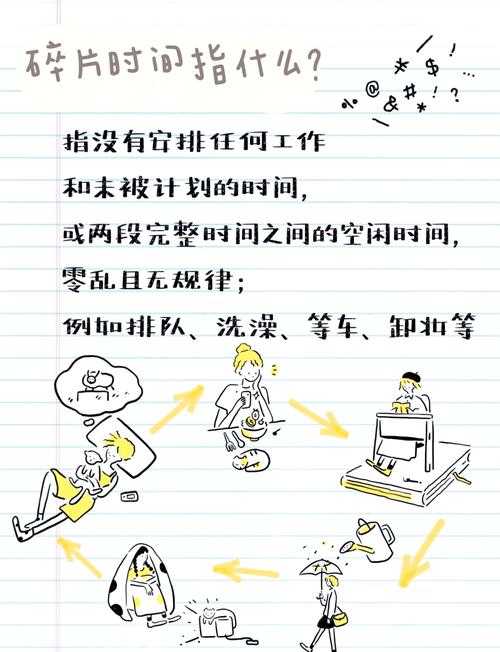 碎片时间指什么?
指没有安排任何工作
和未被计划的时间，
或两段完整时间之间的空闲时间，
零乱且无规律；
例如排队、洗澡、等车、卸妆等